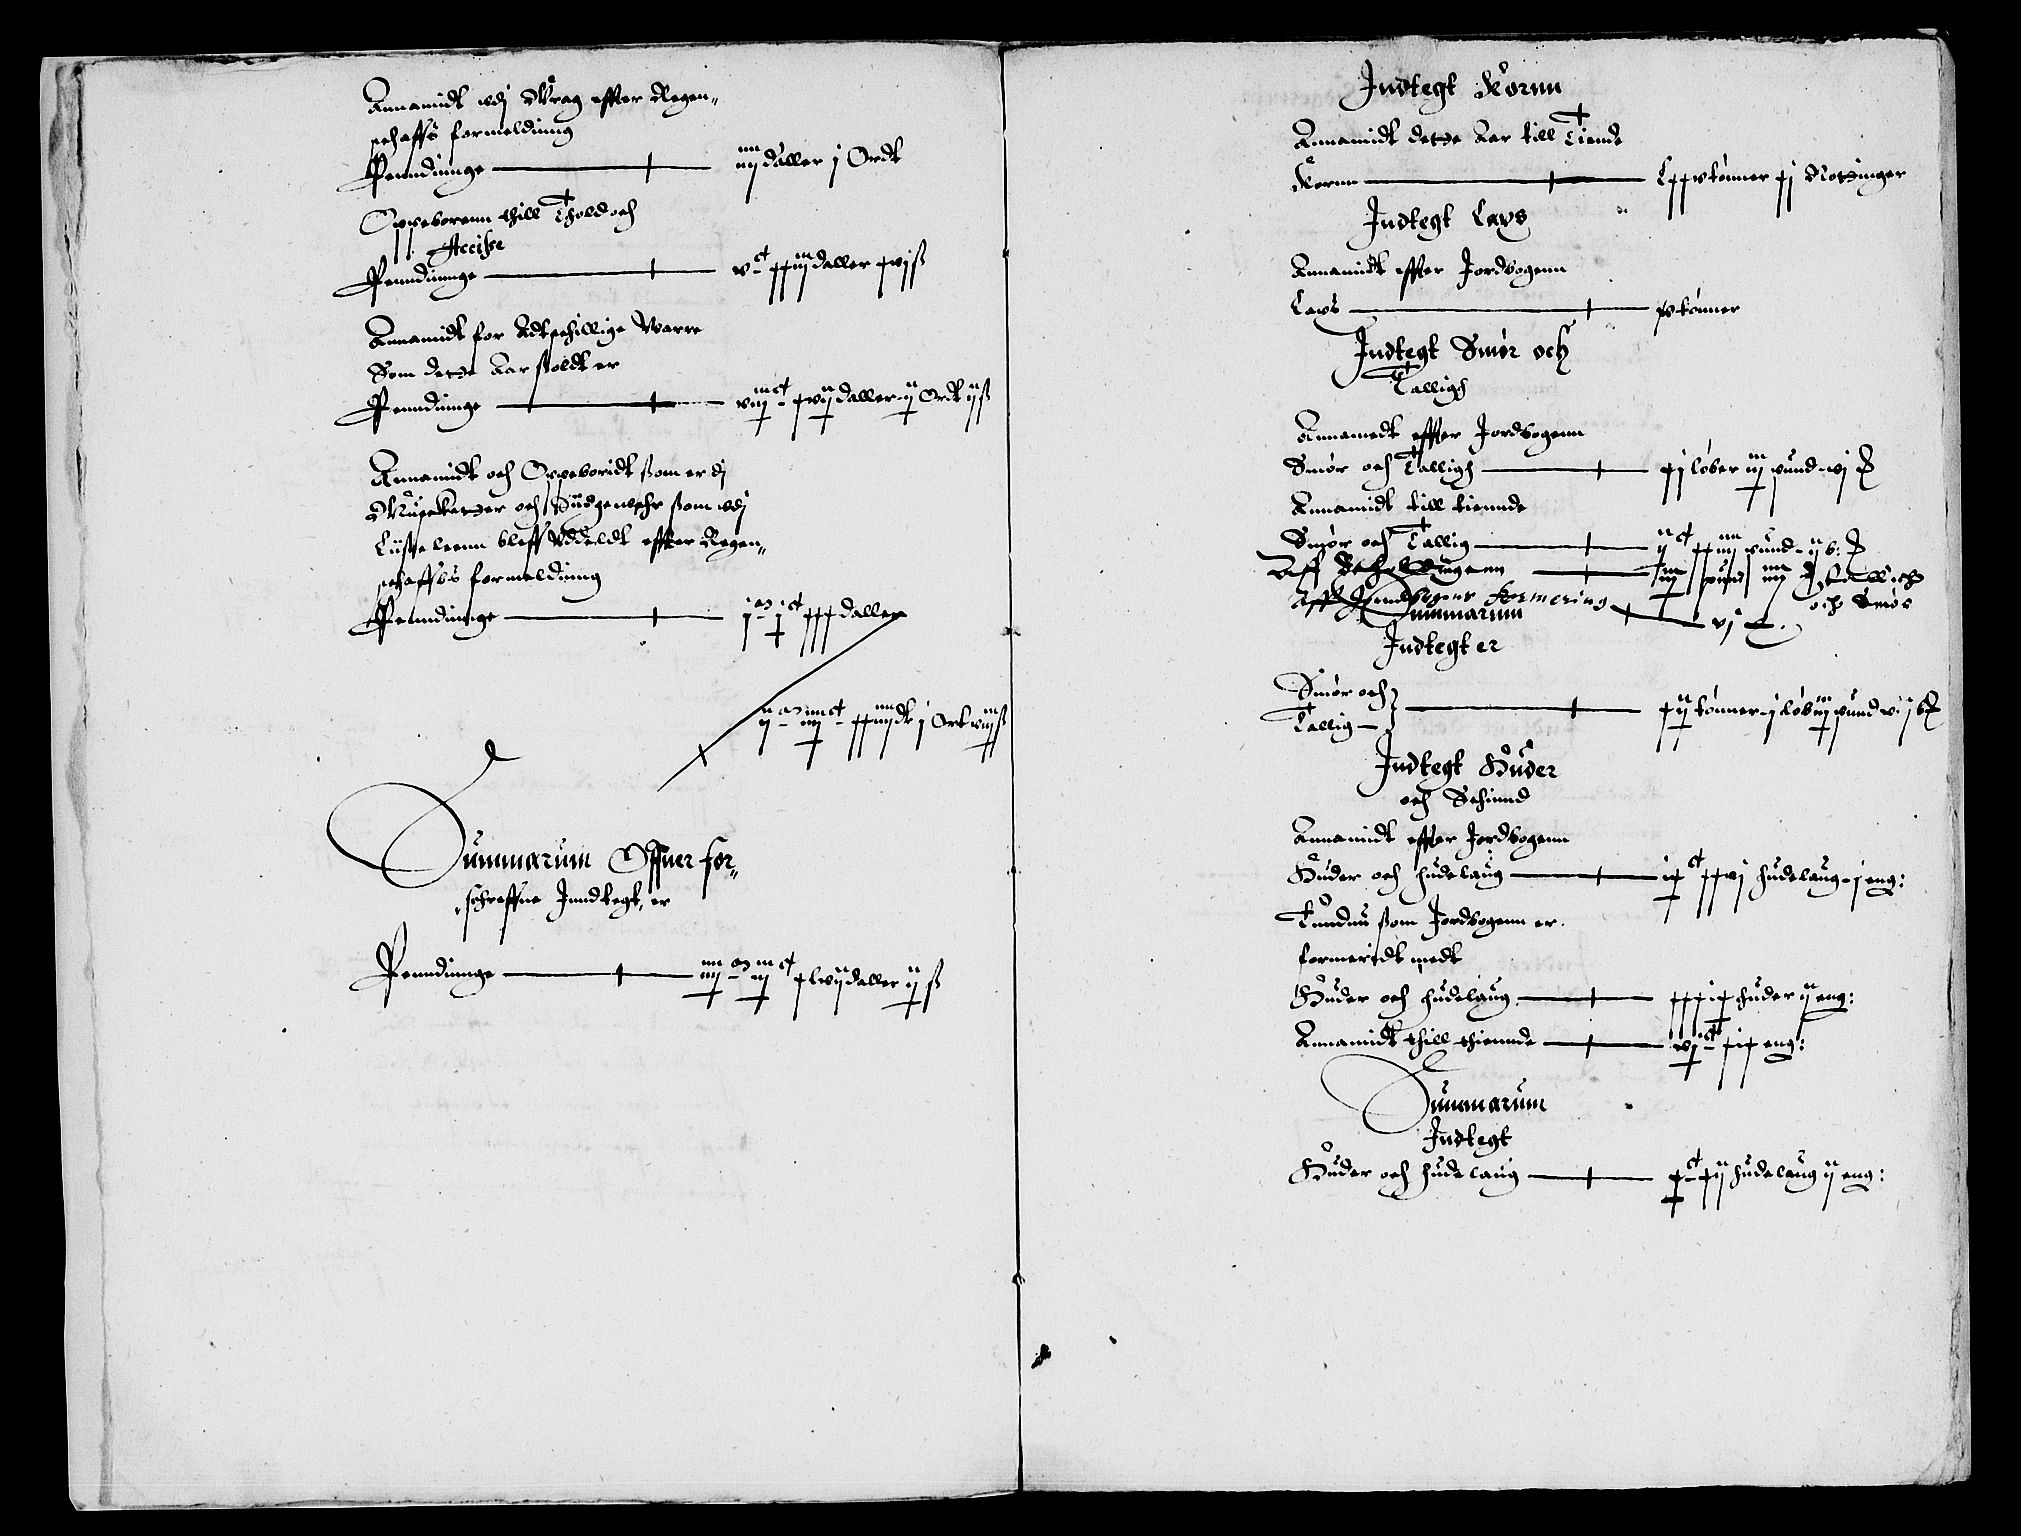 Annamidt udj Wrag effter Regen-
schaffs formelding
Penndinnge — iiij daller j Ordt
Oppeborenn thill Thold och
Accisse
Penndinnge — vᶜ xxiij daller xvj ß
Annamidt for Adtschillige Warre
Som dette Aar ssoldt er
Penndinge — viijᶜ xvij daller ij Ordt ij ß
Annamidt och Oppeboridt ssom er dj
Musketter och Siidgewehr ssom udj
Liisteleenn bleff Uddeldt effter Regen-
schaffbs formelding
Penndinnge — jᵐ jᶜ xxx daller
ijᵐ iiijᶜ xxiiij dt j Ort viij ß
Summarum Offuer for-
schreffne Inndtegt, er
Penndinnge — iiijᵐ iijᶜ xlvij daller ij ß
Indtegt Kornn
Annamidt dette Aar till Tiende
Kornn — lxxv tønner xj Notzinger
Indtegt Lavs
Annamidt effter Jordbogenn
Lavs — xv tønner
Indtegt Smør och
Talligh
Annamedt effter Jordbogenn
Smør och Talligh — xj løber iij pund vj
Annamidt till tiennde
Smør och Tallig — ijᶜ xxiiij pund ij b:
Aff — iij pund iiij Tallich
och Smør
Aff Jordbogens formering — vj
Summarum
Indtegt er
Smør och
Tallig — xij tønner j løb iij pund vij b
Indtegt Huder
och Schinnd
Annamidt effter Jordbogenn
Huder och hudelaug — ixᶜ xxvj hudelaug j eng:
Tundnu ssom Jordbogenn er
formeridt medt
Huder och hudelaug — xxxix huder ij eng:
Annamidt thill thiennde — vjᶜ xix eng:
Summarum
Indtegt
Huder och hudelaug — xᶜ xij hudelaug ij eng: